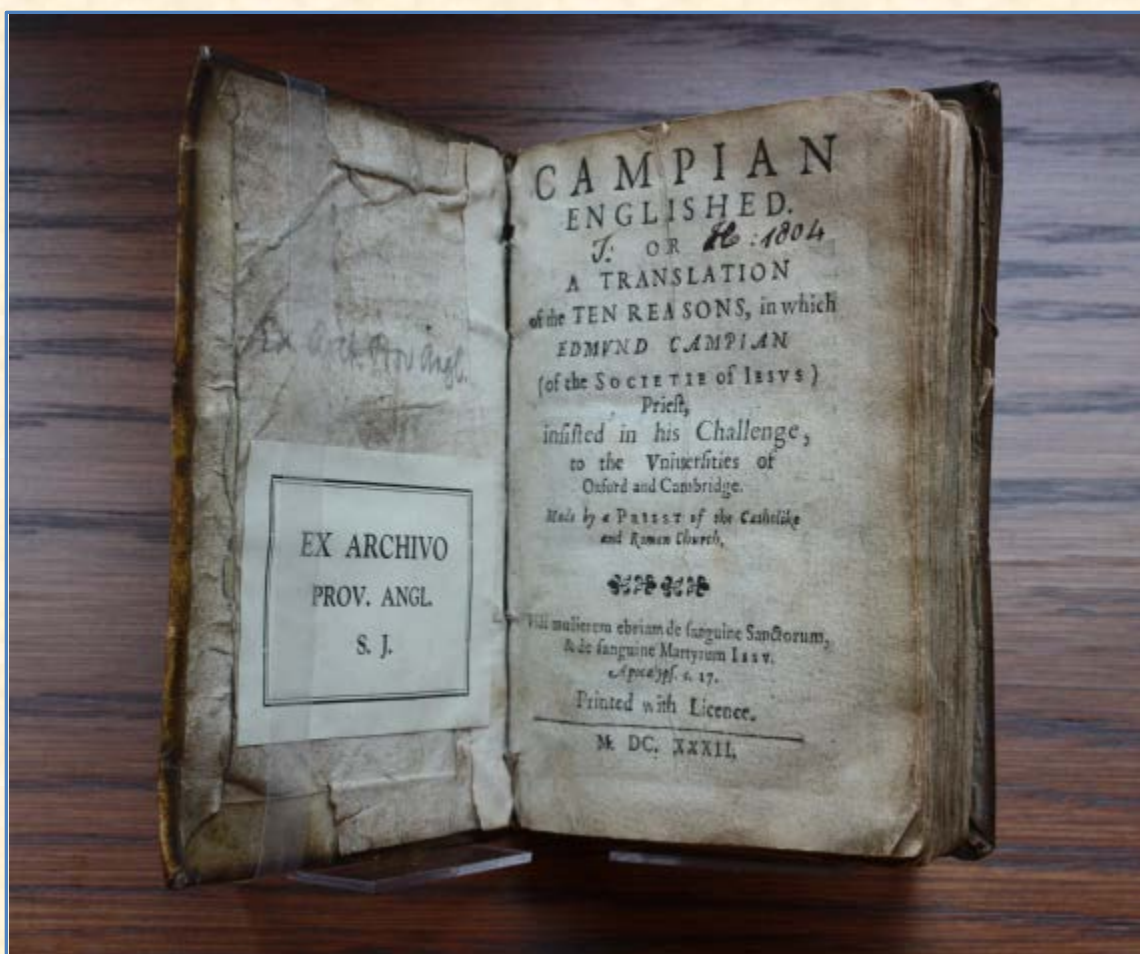 Ex Arch. Prov Angl.
EX ARCHIVO
PROV. ANGL.
S. J.
CAMPIAN
ENGLISHED.
J: OR H : 1804
A TRANSLATION
of the TEN REASONS, in which
EDMVND CAMPIAN
(of the SOCIETIE of IESVS)
Prieſt,
inſiſted in his Challenge,
to the Vniuerſities of
Oxford and Cambridge.
Made by a PRIEST of the Catholike
and Roman Church.
Vidi mulierem ebriam de ſanguine Sanctorum,
& de ſanguine Martyrum IESV.
Apocalypſ. c. 17.
Printed with Licence.
M. DC. XXXII.